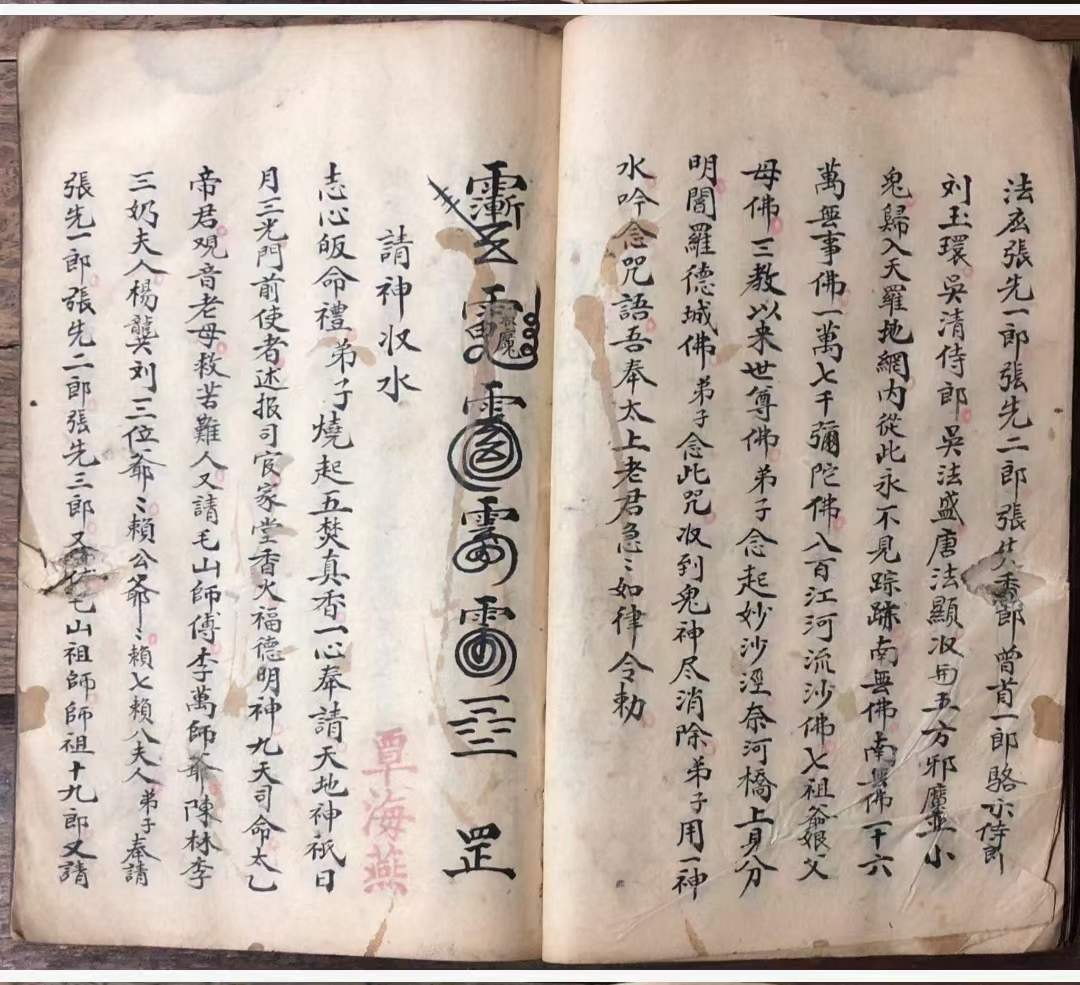 法広張先一郎張先二郎張先郎曾首一郎駱示侍郎
刘玉環吳清侍郎吳法盛唐法顯収用五方邪魔並小
鬼歸入天羅地網内從此永不見踪跡南無佛南無佛一十六
萬無事佛一萬七千彌陀佛八百江河流沙佛七祖爺娘父
母佛三教以来世尊佛弟子念起妙沙涇奈河橋上身分
明閣羅德城佛弟子念此咒収到鬼神尽消除弟子用一神
水吟念咒語吾奉太上老君急〻如律令勅
罡
請神収水
志心皈命禮弟子燒起五焚真香一心奉請天地神祇日
月三光門前使者述报司官家堂香火福德明神九天司命太乙
帝君观音老母救苦難人又請毛山師傅李萬師爺陳林李
三奶夫人楊龔刘三位爺〻賴公爺〻賴七賴八夫人弟子奉請
張先一郎張先二郎張先三郎又毛山祖師師祖十九郎又請
覃海燕